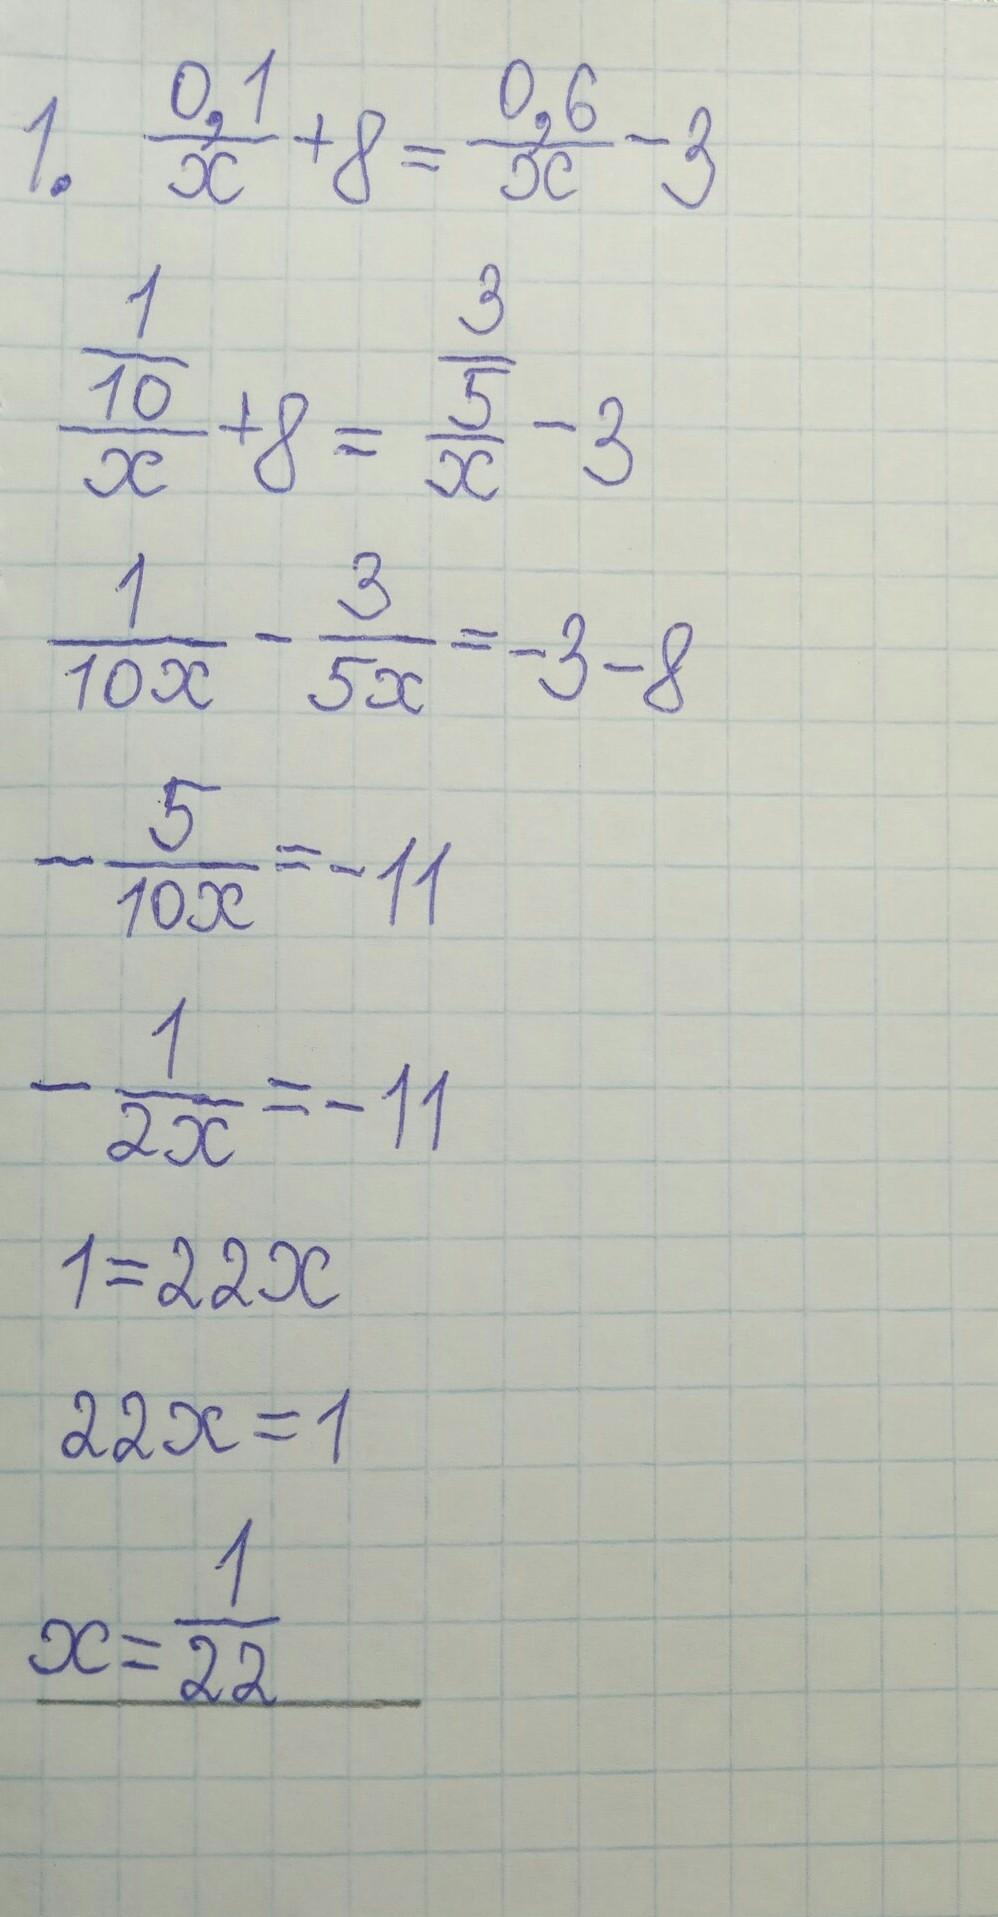 1. 0,1/x + 8 = 0,6/x - 3
1/10/x + 8 = 3/5/x - 3
1/10x - 3/5x = -3 - 8
- 5/10x = -11
- 1/2x = -11
1 = 22x
22x = 1
x = 1/22